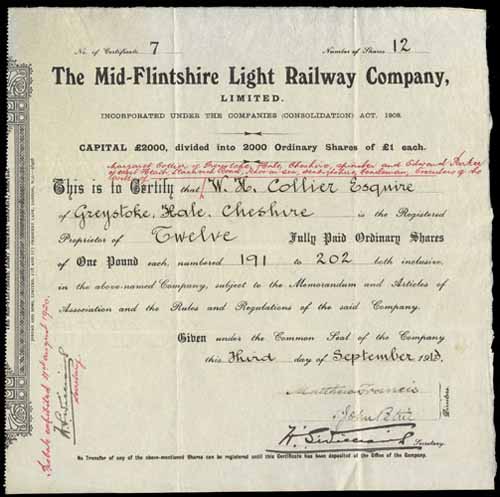 No. of Certificate 7 Number of Shares 12
The Mid-Flintshire Light Railway Company,
LIMITED.
INCORPORATED UNDER THE COMPANIES (CONSOLIDATION) ACT, 1908.
CAPITAL £2000, divided into 2000 Ordinary Shares of £1 each.
Margaret Collier of Greystoke, Hale, Cheshire, spinster and Edward Parker
of West Road, Executors of the
This is to Certify that W. H. Collier Esquire
of Greystoke, Hale, Cheshire is the Registered
Proprietor of Twelve Fully Paid Ordinary Shares
of One Pound each, numbered 191 to 202 both inclusive,
in the above-named Company, subject to the Memorandum and Articles of
Association and the Rules and Regulations of the said Company.
Given under the Common Seal of the Company
this Third day of September 1913.
Matthew Francis
John Petrie
Directors.
Secretary.
No Transfer of any of the above-mentioned Shares can be registered until this Certificate has been deposited at the Office of the Company.
Probate exhibited August 1920.
Secretary